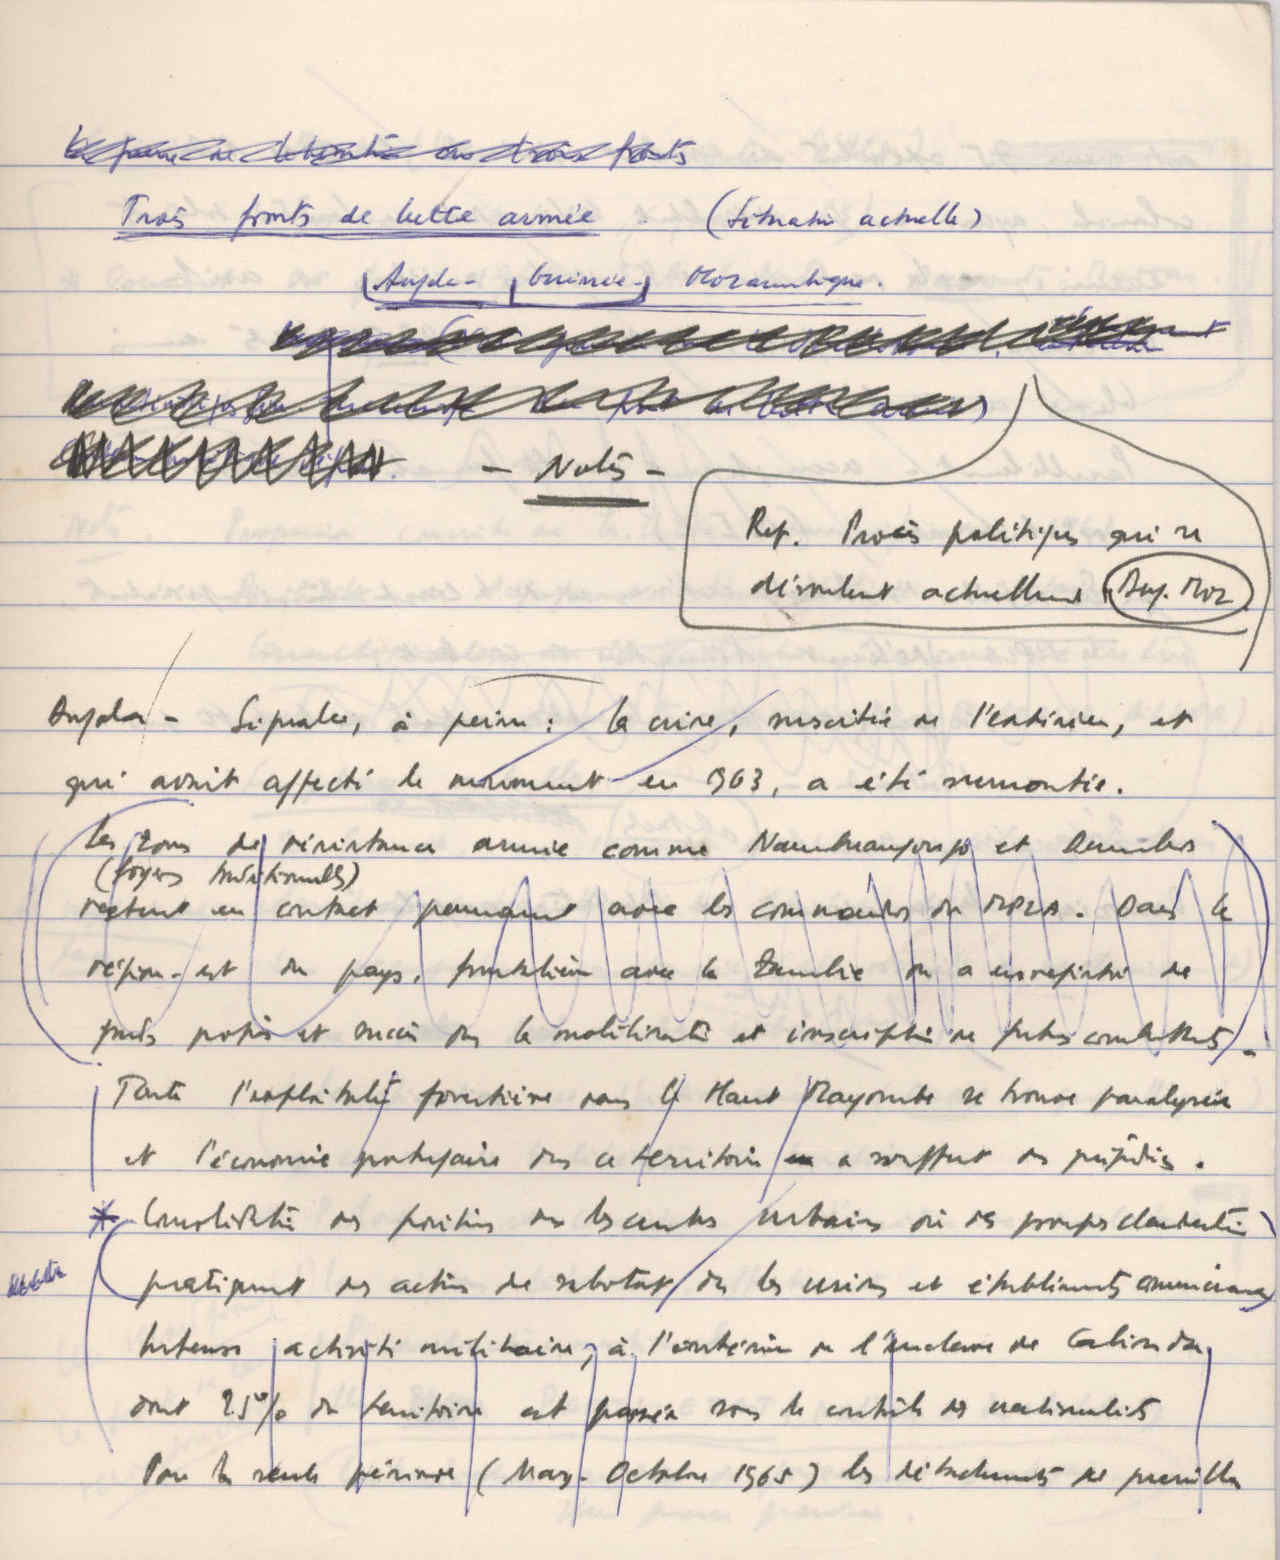 Trois fronts de lutte armée (Situation actuelle)
Angola - Guinée - Mozambique.
- Notes -
Rep. Procès politiques qui se
déroulent actuellement Ang. Moz
Angola - Signaler, à peine : la crise, suscitée de l'extérieur, et
qui avait affecté le mouvement en 1963, a été surmontée.
Les zones de résistance armée comme Nambuangongo et Dembos
(foyers traditionnels)
restent en contact permanent avec les commandos du MPLA. Dans la
région-est du pays, frontalière avec la Zambie on a enregistré de
grands progrès et succès dans la mobilisation et inscription de futurs combattants).
Toute l'exploitation forestière dans le Haut Mayombe se trouve paralysée
et l'économie portugaise dans ce territoire a souffert des préjudices.
* Consolidation des positions dans les centres urbains où des groupes clandestins
pratiquent des actions de sabotage dans les usines et établissements commerciaux
Intense activité militaire, à l'intérieur de l'enclave de Cabinda,
dont 25% du territoire est passée sous le contrôle des nationalistes
Pour la seule période (Mars - Octobre 1965) les détachements de guerilla